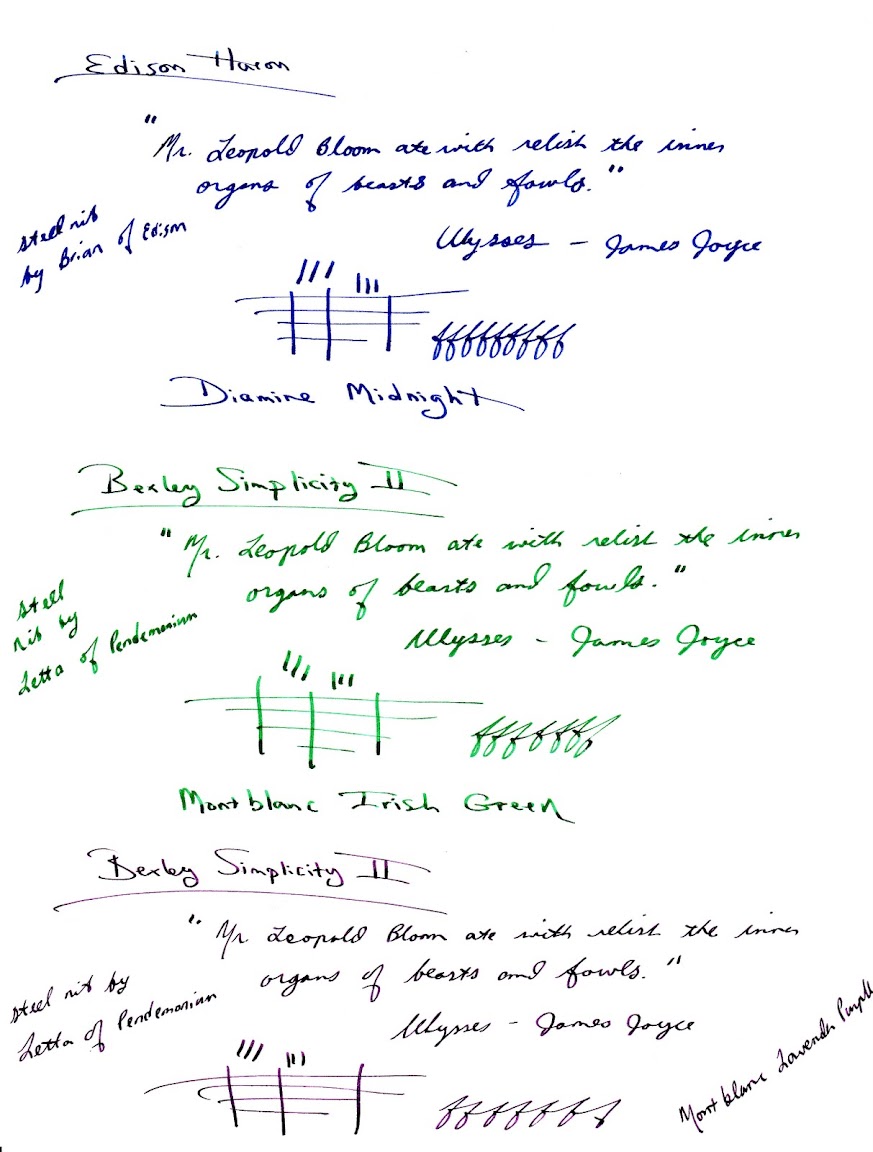 Edison Huron
"Mr. Leopold Bloom ate with relish the inner
organs of beasts and fowls."
steel nib
by Brian of Edison
Ulysses - James Joyce
Diamine Midnight
Bexley Simplicity II
"Mr. Leopold Bloom ate with relish the inner
organs of beasts and fowls."
steel
nib by
Letta of Pendemonium
Ulysses - James Joyce
Montblanc Irish Green
Bexley Simplicity II
"Mr. Leopold Bloom ate with relish the inner
organs of beasts and fowls."
steel nib by
Letta of Pendemonium
Ulysses - James Joyce
Montblanc Lavender Purple